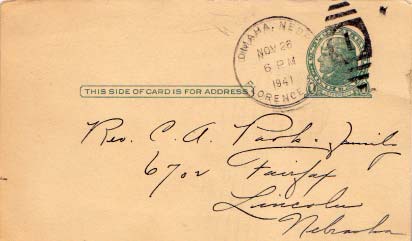 OMAHA, NEBR.
NOV 26
6 PM
1941
FLORENCE
THIS SIDE OF CARD IS FOR ADDRESS
Rev. C. A. Park. Family
6702 Fairfax
Lincoln
Nebraska